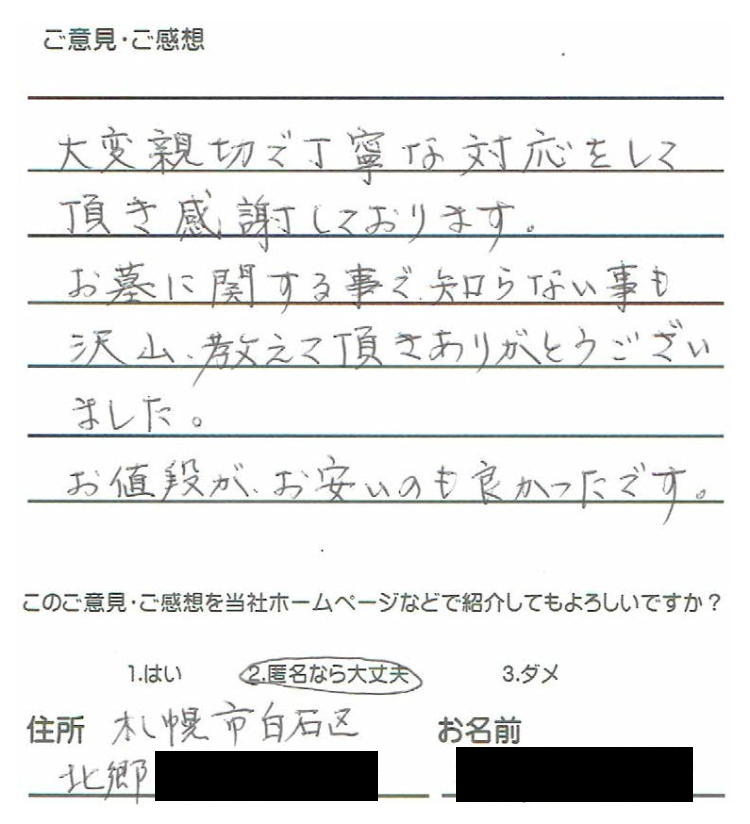 ご意見・ご感想
大変親切で丁寧な対応をして
頂き感謝しております。
お墓に関する事で、知らない事も
沢山、教えて頂きありがとうござい
ました。
お値段が、お安いのも良かったです。
このご意見・ご感想を当社ホームページなどで紹介してもよろしいですか？
1.はい 2.匿名なら大丈夫 3.ダメ
住所 札幌市白石区 お名前
北郷